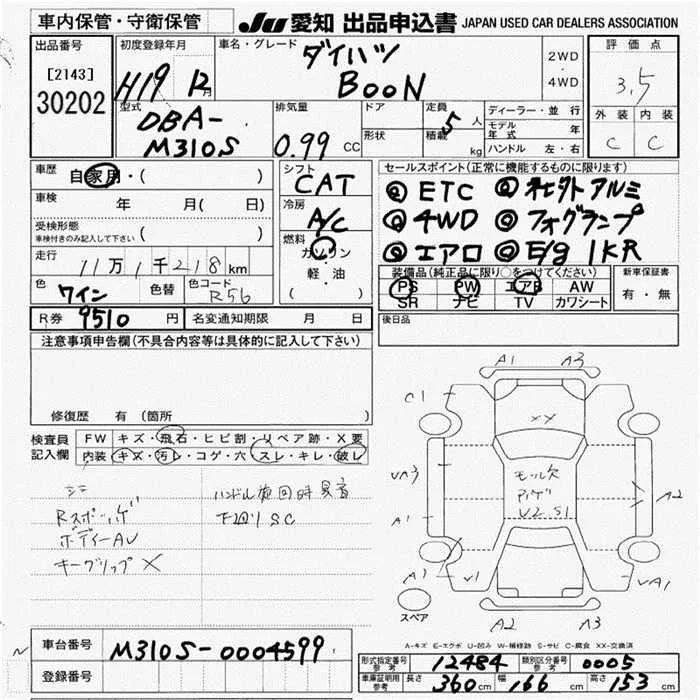 車内保管・守衛保管
JU 愛知 出品申込書 JAPAN USED CAR DEALERS ASSOCIATION
出品番号
[2143]
30202
初度登録年月
H19 12月
車名・グレード
ダイハツ
BOON
2WD
・
4WD
評価点
3.5
外装 内装
C C
型式
DBA-
M310S
排気量
0.99 CC
ドア
形状
定員
5人
積載
kg
ディーラー・並行
モデル年式 年
ハンドル 左・右
車歴
自家用・( )
車検
年 月( 日)
受検形態
車検付きのみ記入して下さい ( )
走行
11万1千218km
色 ワイン 色替 色コード R56
シフト
CAT
冷房
A/C
燃料
ガソリン
軽・油
( )
セールスポイント(正常に機能するものに限ります)
◎ ETC ◎ ネセクト アルミ
◎ 4WD ◎ フォグランプ
◎ エアロ ◎ E/g 1KR
装備品(純正品に限り○をつけてください)
PS PW エアB AW
SR ナビ TV カワシート
新車保証書
有・無
R券 9510円 名変通知期限 月 日
後日品
注意事項申告欄(不具合内容等は具体的に記入して下さい)
修復歴 有(箇所 )
検査員記入欄
FW キズ・飛石・ヒビ割・リペア跡・X要
内装 キズ・汚レ・コゲ・穴・スレ・キレ・破レ
シミ
Rスポハゲ
ボディーAU
キーグリップ X
ハンドル旋回時異音
下廻りSC
A1 A3
C1
XX
UA3
モール欠
アハゲ
U2 S1
A2
A1
A1
U1
UA1
スペア
A2 A3
A-キズ E-エクボ U-凹み W-補修跡 S-サビ C-腐食 XX-交換済
車台番号 M310S-0004599
登録番号
型式指定番号 参考 12484 類別区分番号 参考 0005
車庫証明用 参考 長さ 360cm 幅 166cm 高さ 153cm